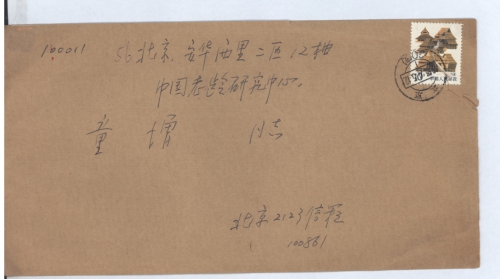 100011
北京.安华西里二区12楼
中国老龄研究中心.
童 增 同志
北京2123信箱
100861